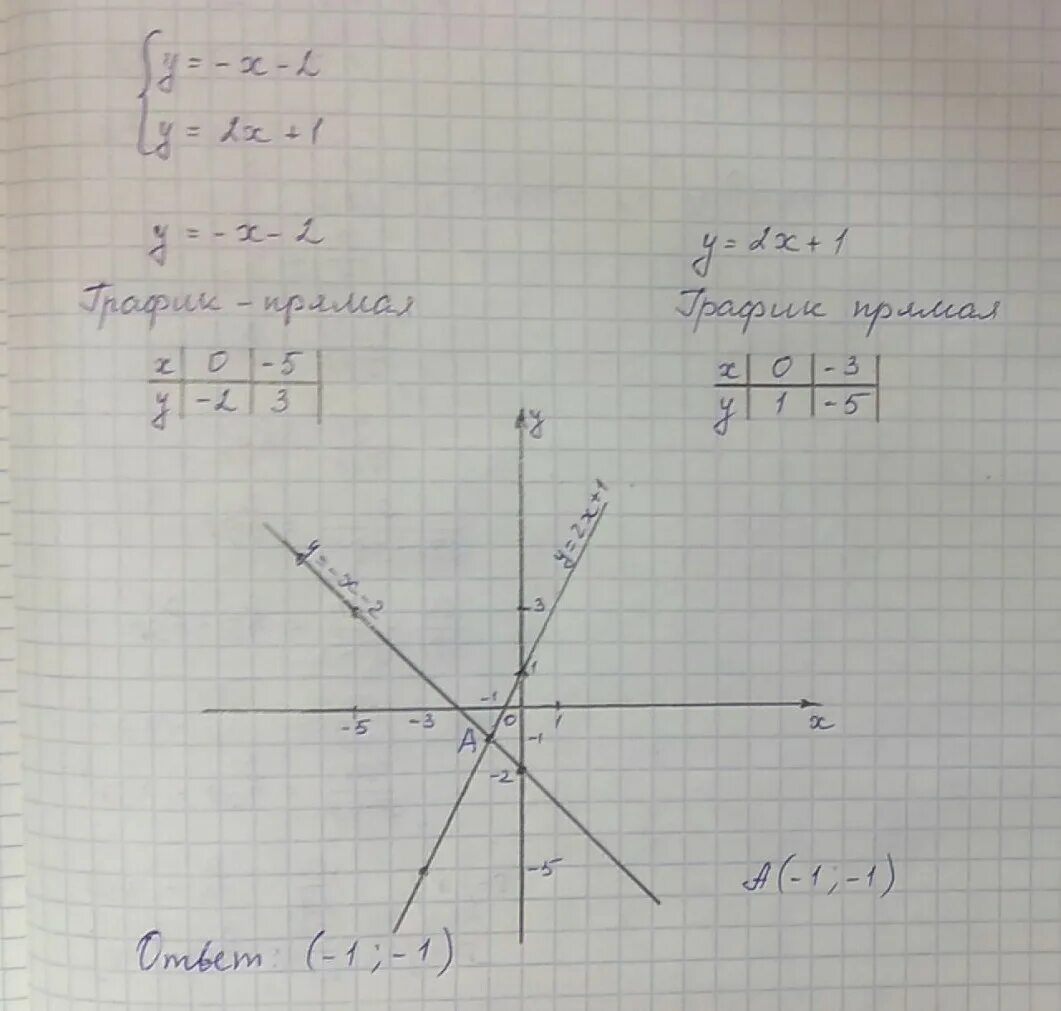 { y = -x - 2
y = 2x + 1
y = -x - 2
График - прямая
x | 0 | -5 |
y | -2 | 3 |
y = 2x + 1
График прямая
x | 0 | -3 |
y | 1 | -5 |
y
y = -x - 2
y = 2x + 1
3
1
-5 -3 -1 0 1 x
A
-1
-2
-5
A(-1; -1)
Ответ: (-1; -1)